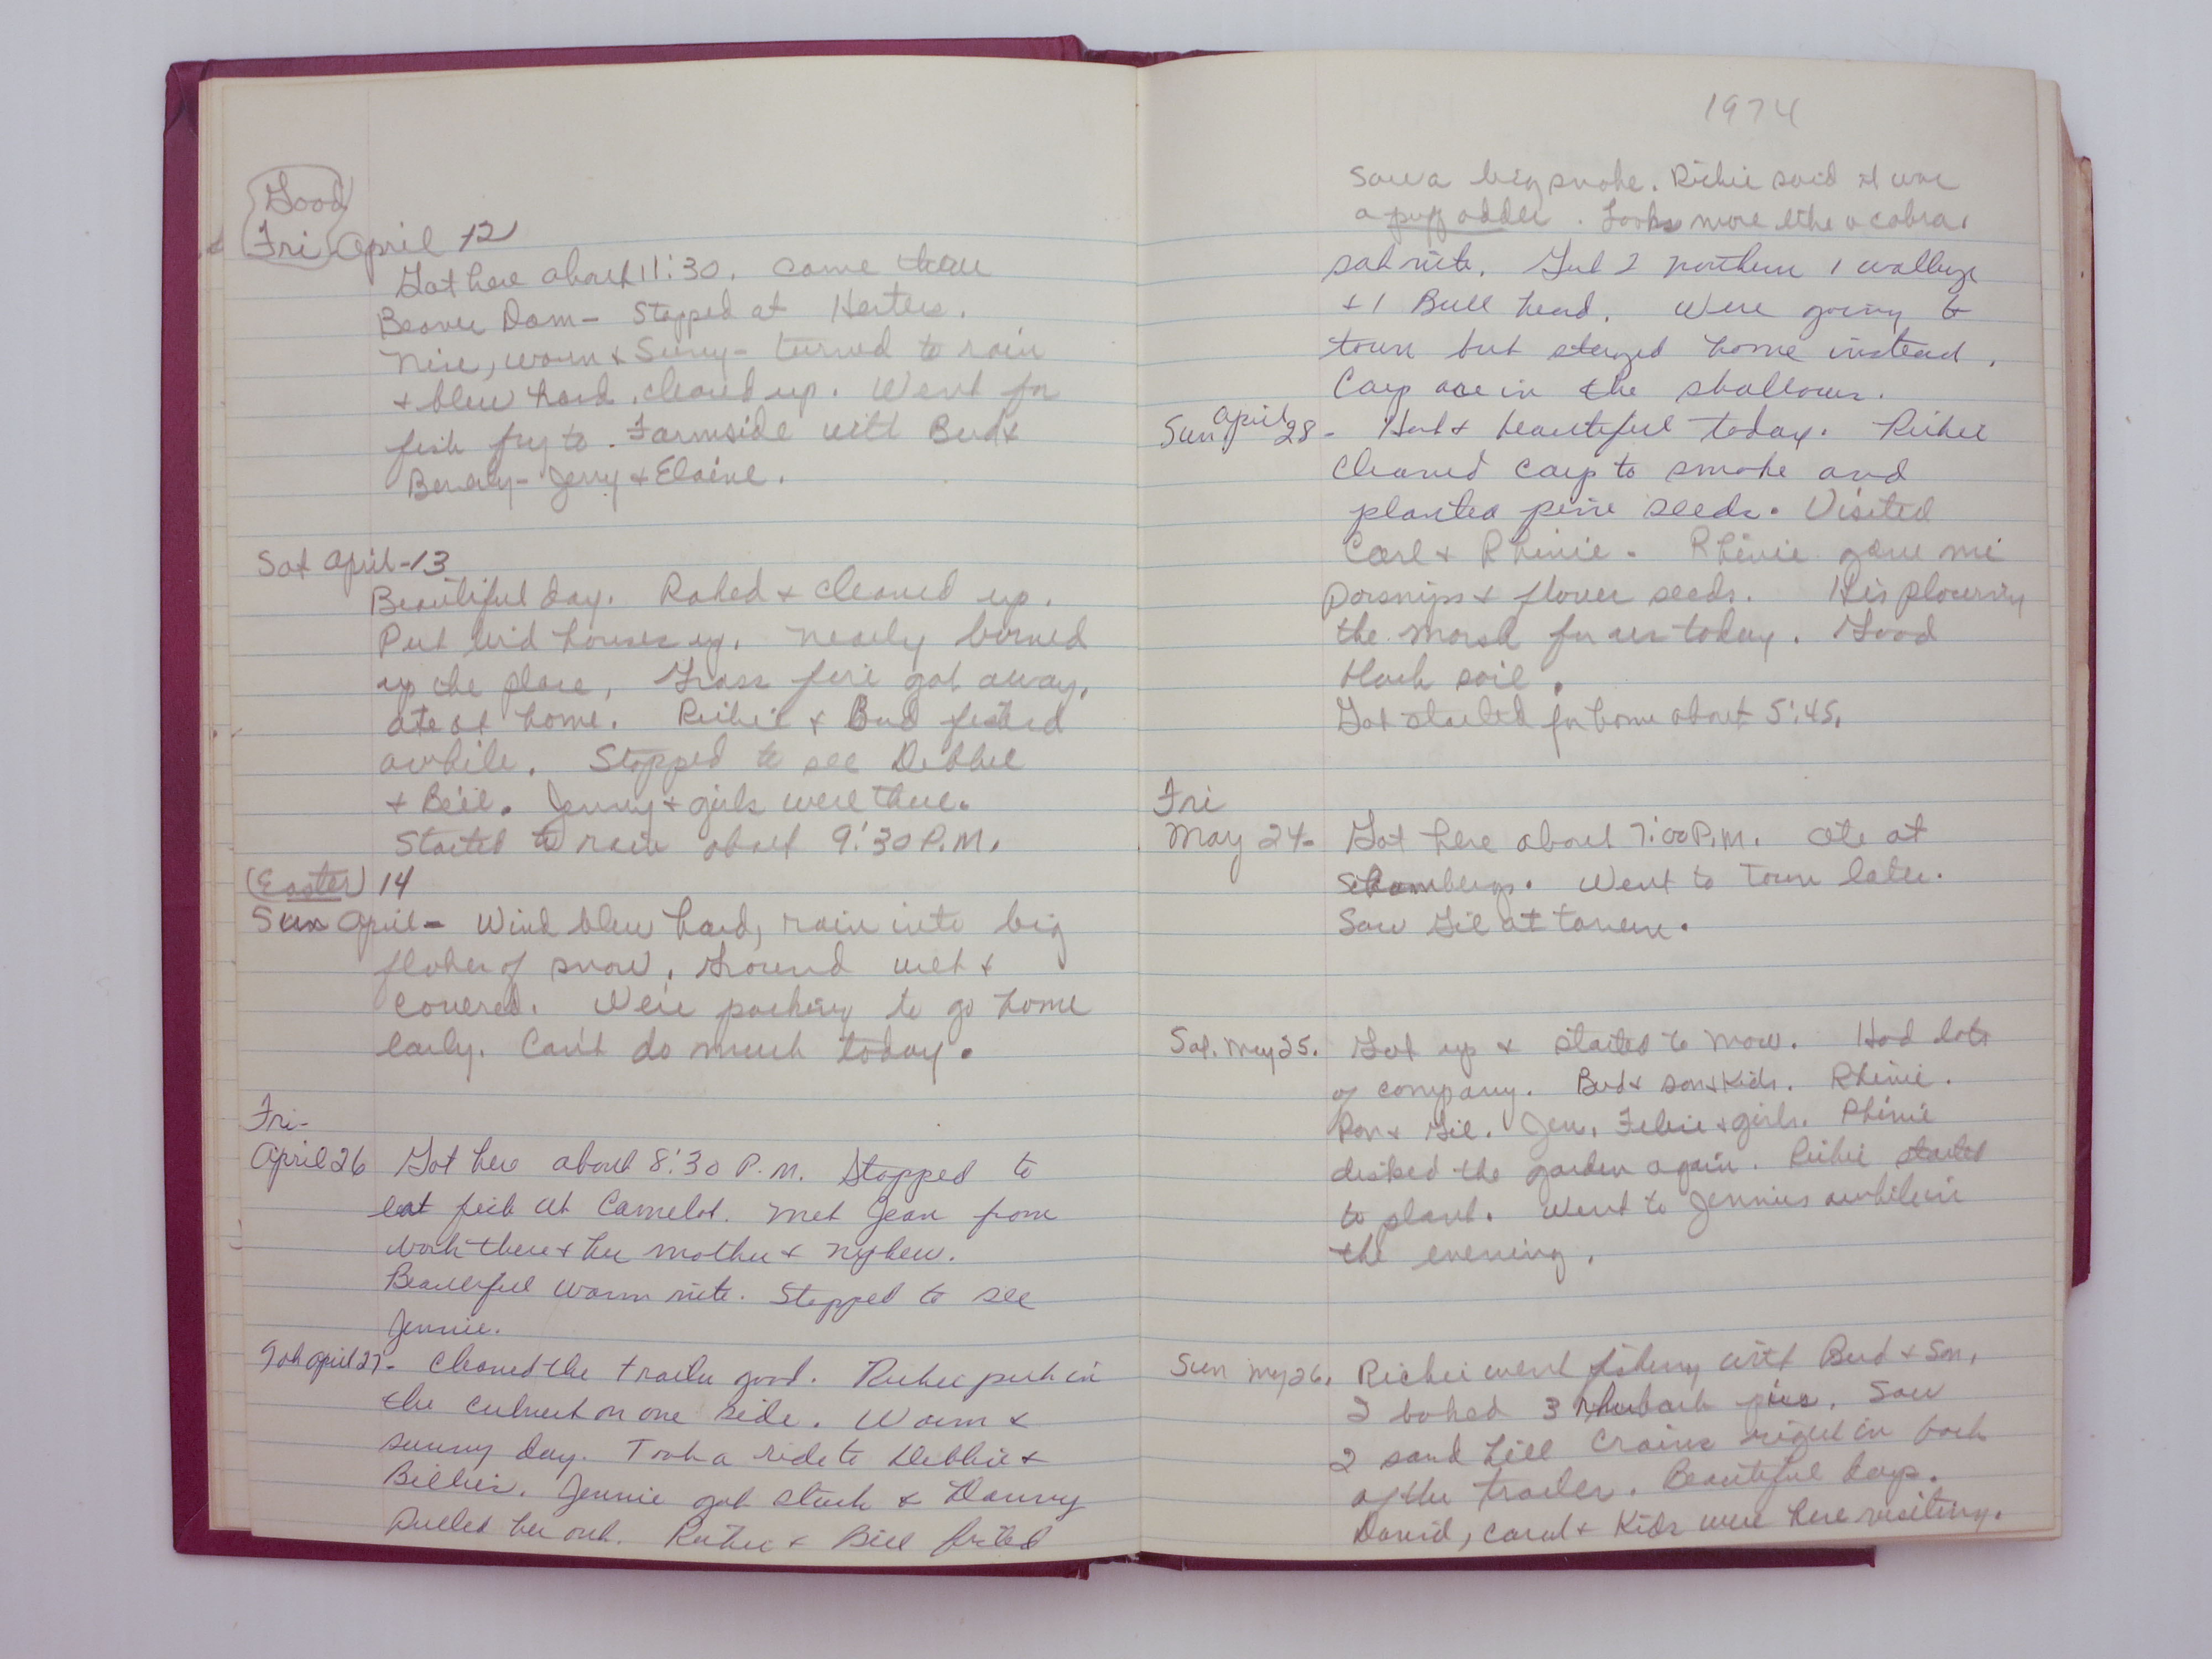 Good
Fri April 12
Got here about 11:30. Came thru
Beaver Dam - Stopped at Herters.
Nice, warm & Sunny - turned to rain
& blew hard. cleared up. Went for
fish fry to Farmside with Bud &
Beverly - Jerry & Elaine.
Sat April - 13
Beautiful day. Raked & cleaned up.
Put bird houses up. Nearly burned
up the place, Grass fire got away.
ate at home. Richie & Bud fished
awhile. Stopped to see Debbie
& Bill. Jenny & girls were there.
Started to rain about 9:30 P.M.
(Easter) 14
Sun April - Wind blew hard, rain into big
flakes of snow. Ground wet &
covered. We're packing to go home
early. Can't do much today.
Fri -
April 26 Got here about 8:30 P.M. Stopped to
eat fish at Camelot. Met Jean from
work there & her mother & nephew.
Beautiful warm nite. Stopped to see
Jennie.
Sat April 27 - Cleaned the trailer good. Richie put in
the culvert on one side. Warm &
sunny day. Took a ride to Debbie &
Billies. Jennie got stuck & Danny
Pulled her out. Richie & Bill fished
1974
Saw a big snake. Richie said it was
a puff adder. Looks more like a cobra.
sat nite. Got 2 northern 1 walleye
& 1 Bull head. Were going to
town but stayed home instead.
Carp are in the shallows.
Sun April 28 - Hot & beautiful today. Richie
cleaned carp to smoke and
planted pine seeds. Visited
Carl & Rhinie. Rhinie gave me
parsnips & flower seeds. He's plowing
the marsh for us today. Good
black soil.
Got started for home about 5:45.
Fri
May 24 - Got here about 7:00 P.M. Ate at
Schambergs. Went to Town later.
Saw Gil at tavern.
Sat. May 25. Got up & started to mow. Had lots
of company. Bud & son & Kids. Rhinie.
Ron & Gil. Jen, & girls. Rhinie
disked the garden again. Richie started
to plant. Went to Jennies awhile in
the evening.
Sun May 26. Richie went fishing with Bud & Son.
I baked 3 rhubarb pies. Saw
2 sand hill Crains right in back
of the trailer. Beautiful days.
David, Carol & Kids were here visiting.